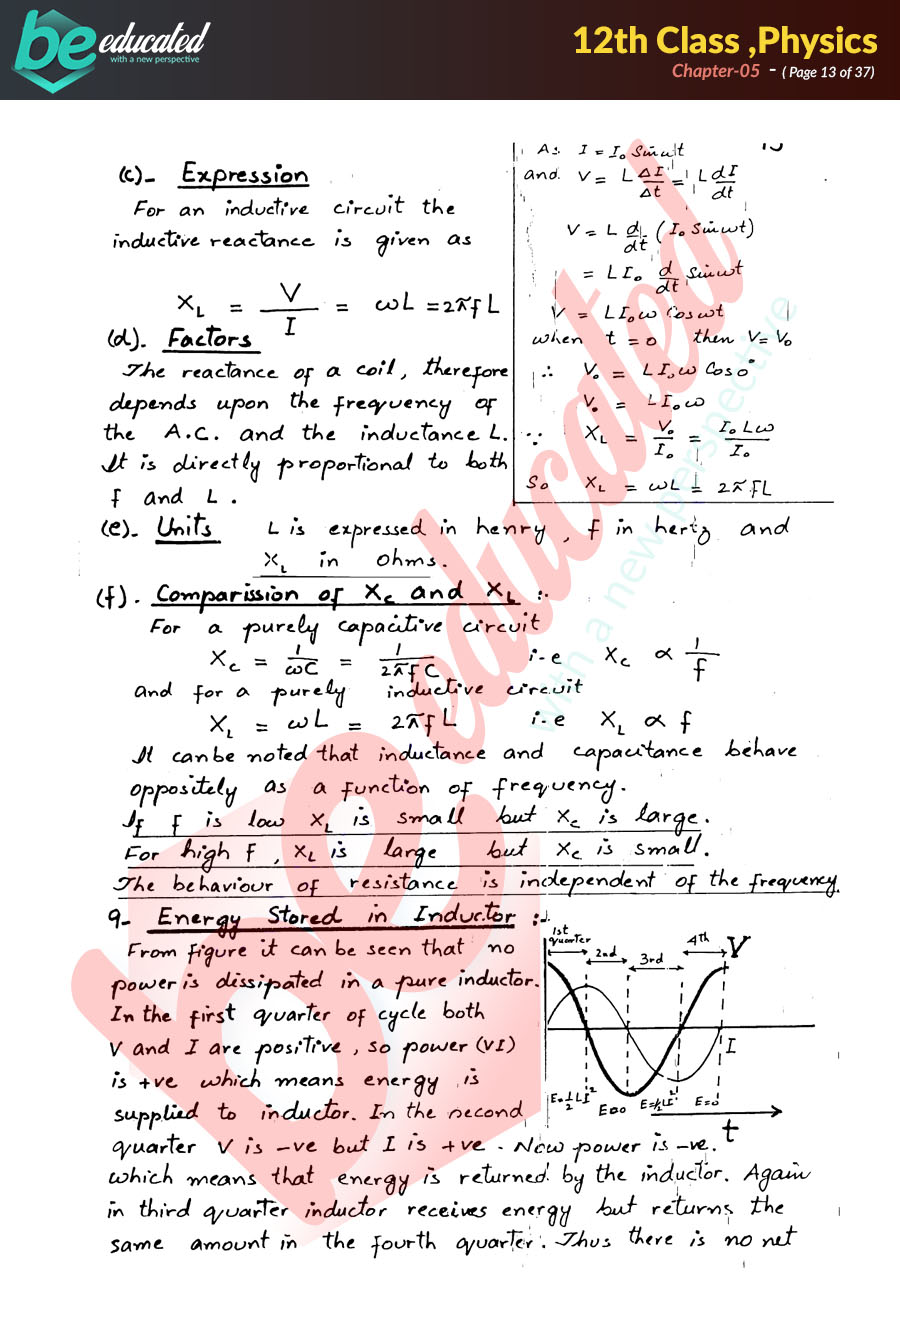 be educated
with a new perspective
12th Class ,Physics
Chapter-05 - ( Page 13 of 37)
(c)- Expression
For an inductive circuit the
inductive reactance is given as
X_L = V/I = ωL = 2πfL
(d). Factors
The reactance of a coil, therefore
depends upon the frequency of
the A.C. and the inductance L.
It is directly proportional to both
f and L .
As I = I₀ Sinωt
and V = L ΔI/Δt = L dI/dt
V = L d/dt (I₀ Sinωt)
= LI₀ d/dt Sinωt
V = LI₀ω Cosωt
when t = 0 then V = V₀
∴ V₀ = LI₀ω Cos0°
V₀ = LI₀ω
∵ X_L = V₀/I₀ = I₀Lω/I₀
So X_L = ωL = 2πfL
(e)- Units L is expressed in henry, f in hertz and
X_L in ohms.
(f). Comparission of X_c and X_L :-
For a purely capacitive circuit
X_c = 1/ωC = 1/2πfC i-e X_c ∝ 1/f
and for a purely inductive circuit
X_L = ωL = 2πfL i-e X_L ∝ f
It can be noted that inductance and capacitance behave
oppositely as a function of frequency.
If f is low X_L is small but X_c is large.
For high f , X_L is large but X_c is small.
The behaviour of resistance is independent of the frequency.
9- Energy Stored in Inductor :-
From figure it can be seen that no
power is dissipated in a pure inductor.
In the first quarter of cycle both
V and I are positive, so power (VI)
is +ve which means energy is
supplied to inductor. In the second
quarter V is -ve but I is +ve. Now power is -ve.
which means that energy is returned by the inductor. Again
in third quarter inductor receives energy but returns the
same amount in the fourth quarter. Thus there is no net
1st
quarter
2nd
3rd
4th
V
I
E=½LI²
E=0
E=½LI²
E=0
t
be educated
with a new perspective